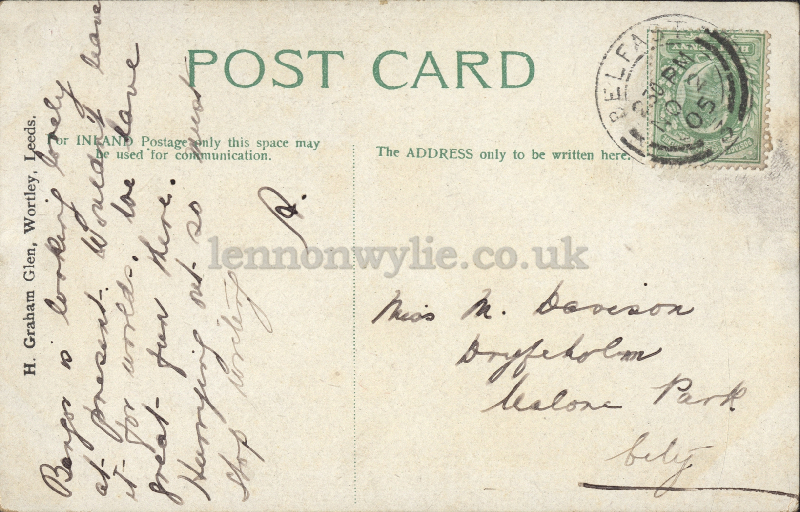 POST CARD
For INLAND Postage only this space may
be used for communication.
The ADDRESS only to be written here.
H. Graham Glen, Wortley, Leeds.
Bangor is looking lovely
at present. Wouldn't leave
it for worlds. We have
great fun here.
Hurrying out so must
stop writing
Miss M. Davison
Dryfeholm
Malone Park
City
BELFAST
2 30 PM
05
lennonwylie.co.uk